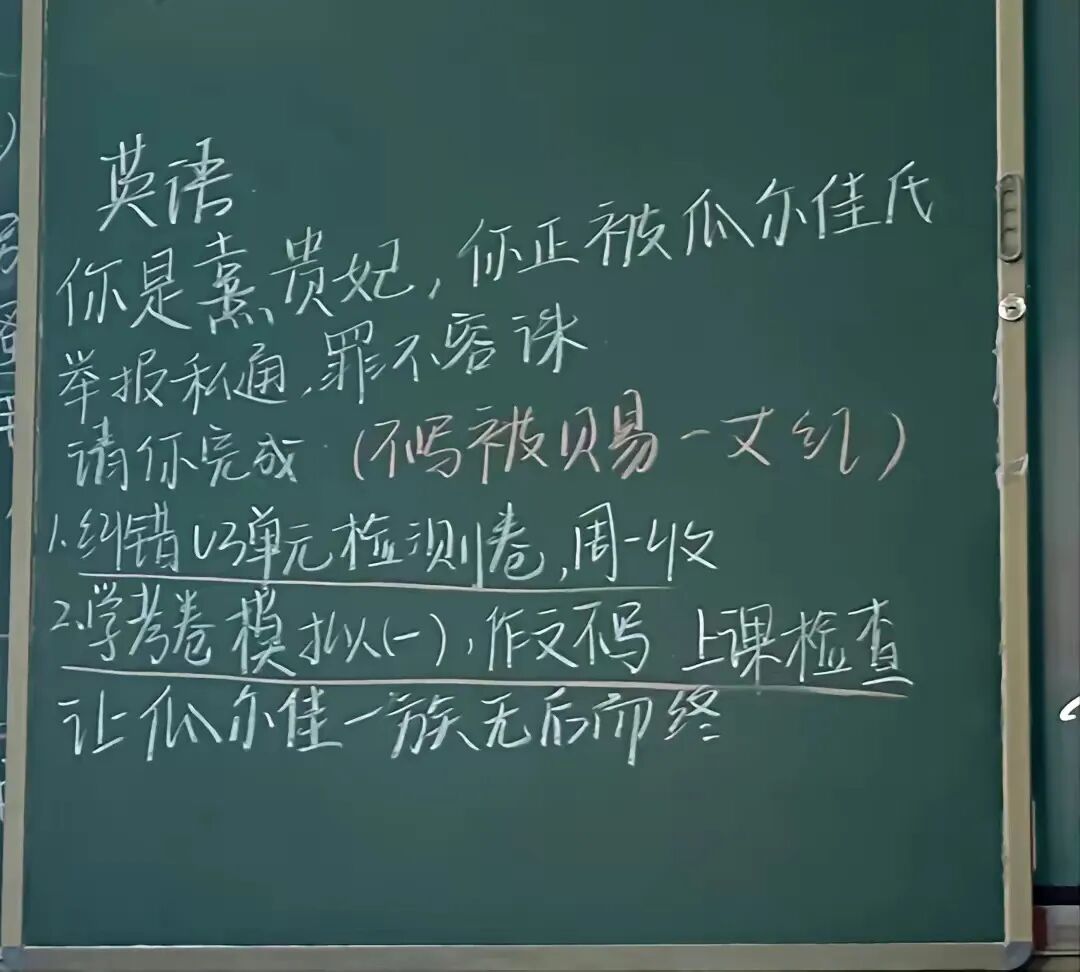 英语
你是熹贵妃,你正被瓜尔佳氏
举报私通,罪不容诛
请你完成(不写被赐一丈红)
1.纠错U3单元检测卷,周一收
2.学考卷模拟(一),作文不写 上课检查
让瓜尔佳一族无后而终